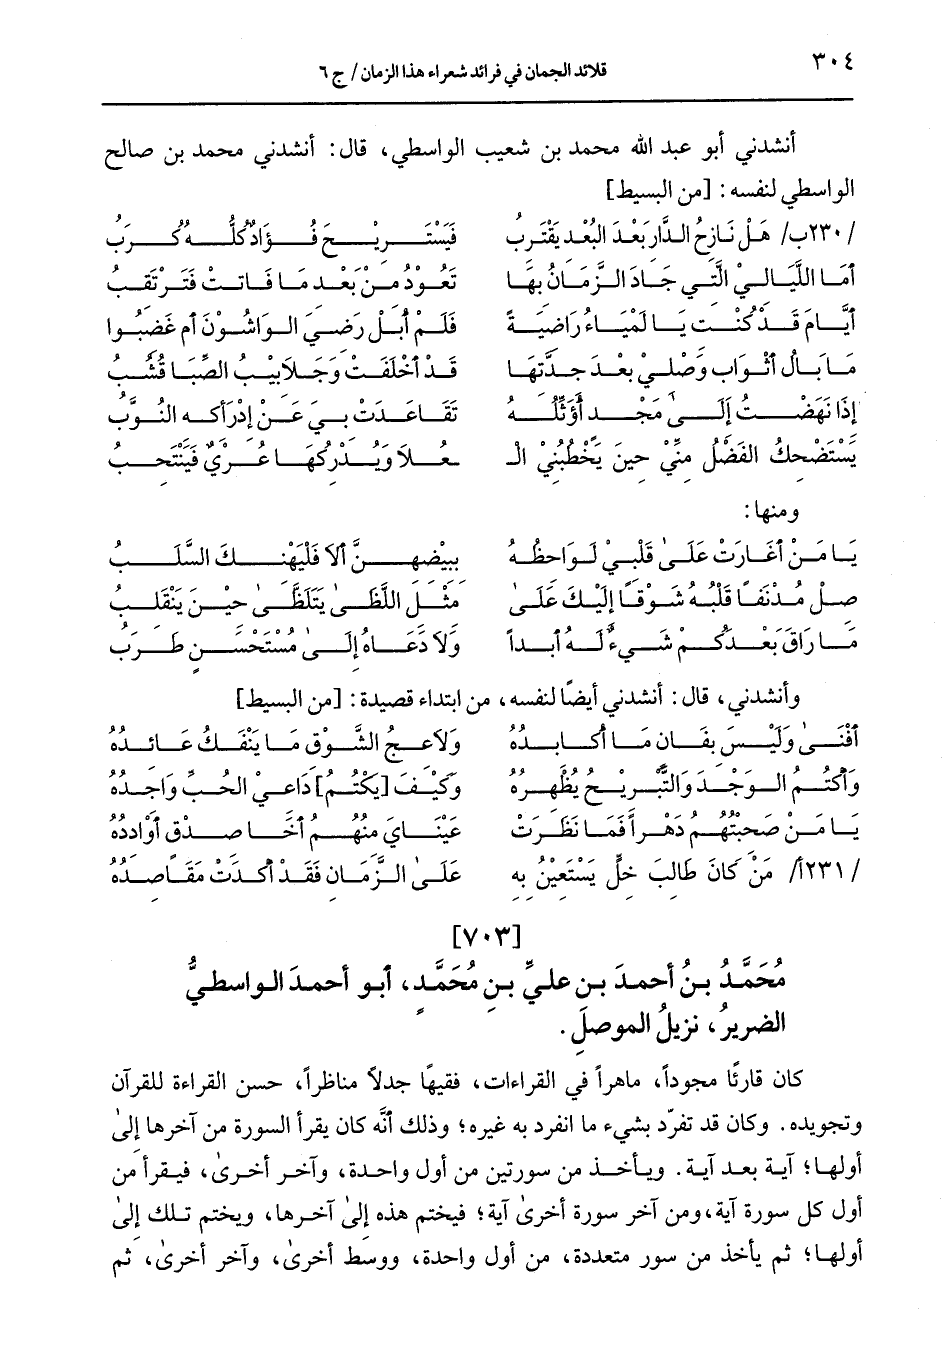 ٣٠٤
قلائد الجمان في فرائد شعراء هذا الزمان / ج ٦
أنشدني أبو عبد الله محمد بن شعيب الواسطي، قال: أنشدني محمد بن صالح
الواسطي لنفسه: [من البسيط]
/٢٣٠ب/ هَلْ نَازِحُ الدَّارِ بَعْدَ البُعْدِ يَقْتَرِبُ فَيَسْتَرِيْحَ فُؤَادٌ كُلُّهُ كُرَبُ
أَمَا اللَّيَالِيْ الَّتِي جَادَ الزَّمَانُ بِهَا تَعُوْدُ مِنْ بَعْدِ مَا فَاتَتْ فَتُرْتَقَبُ
أَيَّامَ قَدْ كُنْتِ يَا لَمْيَاءُ رَاضِيَةً فَلَمْ أُبَلْ رَضِيَ الوَاشُوْنَ أم غَضِبُوا
مَا بَالُ أَثْوَابِ وَصْلِي بَعْدَ جِدَّتِهَا قَدْ أَخْلَقَتْ وَجَلاَبِيْبُ الصِّبَا قُشُبُ
إِذَا نَهَضْتُ إِلَى مَجْدٍ أُؤَثِّلُهُ تَقَاعَدَتْ بِيَ عَنْ إِدْرَاكِهِ النُّوَبُ
يَسْتَضْحِكُ الفَضْلُ مِنِّيْ حِينَ يَخْطُبُنِي الـ ـعُلاَ وَيُدْرِكُهَا غُرِّيْ فَيَنْتَحِبُ
ومنها:
يَا مَنْ أَغَارَتْ عَلَى قَلْبِيْ لَوَاحِظُهُ بِبِيْضِهِنَّ أَلاَ فَلْيَهْنِكَ السَّلَبُ
صِلْ مُدْنَفًا قَلْبُهُ شَوْقًا إِلَيْكَ عَلَى مِثْلِ اللَّظَى يَتَلَظَّى حِيْنَ يَنْقَلِبُ
مَا رَاقَ بَعْدَكُمُ شَيءٌ لَهُ أَبَداً وَلاَ دَعَاهُ إِلَى مُسْتَحْسَنٍ طَرَبُ
وأنشدني، قال: أنشدني أيضًا لنفسه، من ابتداء قصيدة: [من البسيط]
أَفْنَى وَلَيْسَ بِفَانٍ مَا أُكَابِدُهُ وَلاَعِجُ الشَّوْقِ مَا يَنْفَكُّ عَائِدُهُ
وَأَكْتُمُ الوَجْدَ وَالتَّبْرِيحُ يُظْهِرُهُ وَكَيْفَ [يَكْتُمُ] دَاعِي الحُبِّ وَاجِدُهُ
يَا مَنْ صَحِبْتُهُمُ دَهْراً فَمَا نَظَرَتْ عَيْنَايَ مِنْهُمْ أَخَا صِدْقٍ أُوَادِدُهُ
/٢٣١أ/ مَنْ كَانَ طَالِبَ خِلٍّ يَسْتَعِيْنُ بِهِ عَلَى الزَّمَانِ فَقَدْ أَكْدَتْ مَقَاصِدُهُ
[٧٠٣]
مُحَمَّدُ بنُ أحمدَ بنِ عليِّ بنِ مُحَمَّدٍ، أبو أحمدَ الواسطيُّ
الضريرُ، نزيلُ الموصلِ.
كان قارئًا مجوداً، ماهراً في القراءات، فقيهًا جدلاً مناظراً، حسن القراءة للقرآن
وتجويده. وكان قد تفرّد بشيء ما انفرد به غيره؛ وذلك أنَّه كان يقرأ السورة من آخرها إلىٰ
أولها؛ آية بعد آية. ويأخذ من سورتين من أول واحدة، وآخر أخرىٰ، فيقرأ من
أول كل سورة آية، ومن آخر سورة أخرىٰ آية؛ فيختم هذه إلىٰ آخرها، ويختم تلك إلىٰ
أولها؛ ثم يأخذ من سور متعددة، من أول واحدة، ووسط أخرىٰ، وآخر أخرىٰ، ثم